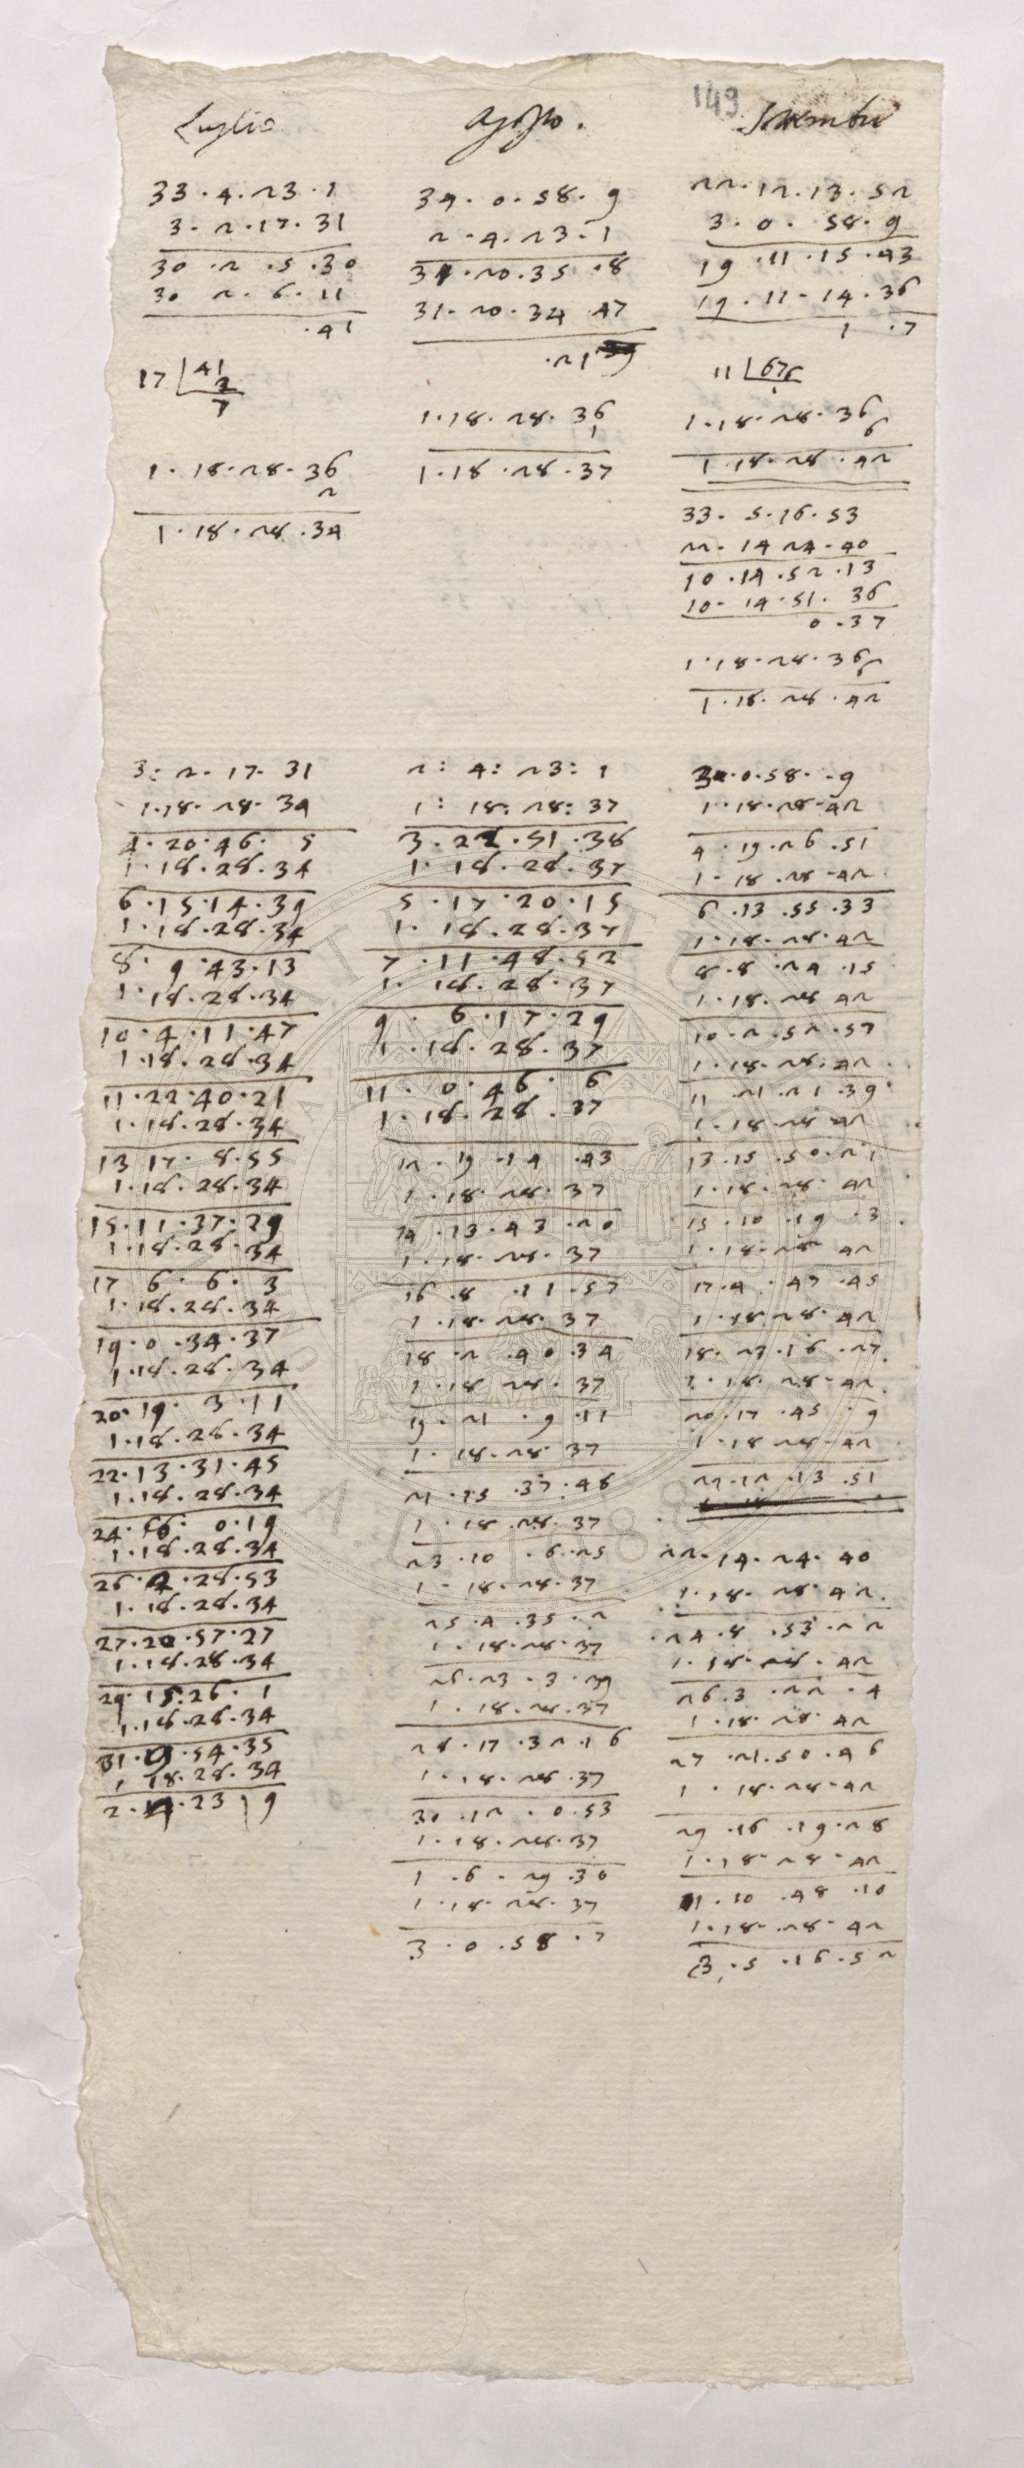 149
Luglio
33 . 4 . 23 . 1
3 . 2 . 17 . 31
30 . 2 . 5 . 30
30 2 . 6 . 11
. 41
17 41
2
7
1 . 18 . 28 . 36
2
1 . 18 . 28 . 34
3 : 2 . 17 . 31
1 . 18 . 28 . 34
4 . 20 . 46 . 5
1 . 18 . 28 . 34
6 . 15 . 14 . 39
1 . 18 . 28 . 34
8 . 9 . 43 . 13
1 . 18 . 28 . 34
10 . 4 . 11 . 47
1 . 18 . 28 . 34
11 . 22 . 40 . 21
1 . 18 . 28 . 34
13 17 . 8 . 55
1 . 18 . 28 . 34
15 . 11 . 37 . 29
1 . 18 . 28 . 34
17 6 . 6 . 3
1 . 18 . 28 . 34
19 . 0 . 34 . 37
1 . 18 . 28 . 34
20 . 19 . 3 . 11
1 . 18 . 28 . 34
22 . 13 . 31 . 45
1 . 18 . 28 . 34
24 . 0 . 19
1 . 18 . 28 . 34
26 . 2 . 28 . 53
1 . 18 . 28 . 34
27 . 20 . 57 . 27
1 . 18 . 28 . 34
29 . 15 : 26 . 1
1 . 18 . 28 . 34
31 . 9 . 54 . 35
1 18 . 28 . 34
2 . 4 . 23 9
Agosto .
34 . 0 . 58 . 9
2 . 4 . 23 . 1
31 . 20 . 35 . 8
31 . 20 . 34 . 47
. 21
1 . 18 . 28 . 36
1
1 . 18 . 28 . 37
2 : 4 : 23 : 1
1 : 18 : 28 : 37
3 . 22 . 51 . 38
1 . 18 . 28 . 37
5 . 17 . 20 . 15
1 . 18 . 28 . 37
7 . 11 . 48 . 52
1 . 18 . 28 . 37
9 . 6 . 17 . 29
1 . 18 . 28 . 37
11 . 0 . 46 . 6
1 . 18 . 28 . 37
12 . 19 . 14 . 43
1 . 18 . 28 . 37
14 . 13 . 43 . 20
1 . 18 . 28 . 37
16 . 8 . 11 . 57
1 . 18 . 28 . 37
18 . 2 . 40 . 34
1 . 18 28 . 37
19 . 21 . 9 . 11
1 . 18 . 28 . 37
21 . 15 . 37 . 48
1 . 18 . 28 . 37
23 . 10 . 6 . 25
1 . 18 . 28 . 37
25 . 4 . 35 . 2
1 . 18 . 28 . 37
26 . 23 . 3 . 39
1 . 18 . 28 . 37
28 . 17 . 32 . 16
1 . 18 . 28 . 37
30 . 12 . 0 . 53
1 . 18 . 28 . 37
1 . 6 . 29 . 30
1 . 18 . 28 . 37
3 . 0 . 58 . 7
Settembre
22 . 12 . 13 . 52
3 . 0 . 58 . 9
19 . 11 . 15 . 43
19 . 11 . 14 . 36
1 . 7
11 67
1 . 18 . 28 . 36
6
1 . 18 . 28 . 42
33 . 5 . 16 . 53
22 . 14 24 . 40
10 . 14 . 52 . 13
10 . 14 . 51 . 36
0 . 37
1 . 18 . 28 . 36
6
1 . 18 . 28 . 42
3 . 0 . 58 . 9
1 . 18 . 28 . 42
4 . 19 . 26 . 51
1 . 18 . 28 . 42
6 . 13 . 55 . 33
1 . 18 . 28 . 42
8 . 8 . 24 . 15
1 . 18 . 28 42
10 . 2 . 52 . 57
1 . 18 . 28 . 42
11 . 21 . 21 . 39
1 . 18 . 28 . 42
13 . 15 . 50 . 21
1 . 18 . 28 . 42
15 . 10 . 19 . 3
1 . 18 . 28 42
17 . 4 . 47 . 45
1 . 18 . 28 . 42
18 . 23 . 16 . 27
1 . 18 . 28 . 42
20 . 17 . 45 . 9
1 . 18 28 . 42
22 . 12 . 13 . 51
22 . 14 . 24 . 40
1 . 18 . 28 . 42
24 . 8 . 53 . 22
1 . 18 . 28 . 42
26 . 3 . 22 . 4
1 . 18 . 28 . 42
27 . 21 . 50 . 46
1 . 18 . 28 . 42
29 . 16 . 19 . 28
1 . 18 . 28 . 42
1 . 10 . 48 . 10
1 . 18 . 28 . 42
3 . 5 . 16 . 52